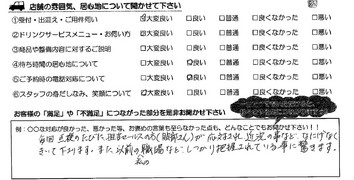 店舗の雰囲気、居心地について聞かせて下さい
①受付・出迎え・ご用件伺い □大変良い □良い □普通 □良くなかった □悪い
②ドリンクサービスメニュー・お伺い方 □大変良い □良い □普通 □良くなかった □悪い
③商品や整備内容に対するご説明 □大変良い □良い □普通 □良くなかった □悪い
④待ち時間の居心地について □大変良い □良い □普通 □良くなかった □悪い
⑤ご予約時の電話対応について □大変良い □良い □普通 □良くなかった □悪い
⑥スタッフの身だしなみ、笑顔について □大変良い □良い □普通 □良くなかった □悪い
お客様の「満足」や「不満足」につながった部分を是非お聞かせ下さい
例：○○な対応が良かった、悪かった等、お褒めの言葉も至らなかった点も、どんなことでもお聞かせ下さい！！
毎回点検のたびに、担当セールスの
が応対され近況の事など、なにげなく
きいて下ります。また以前の職場など、しっかり把握されている事に驚きます。